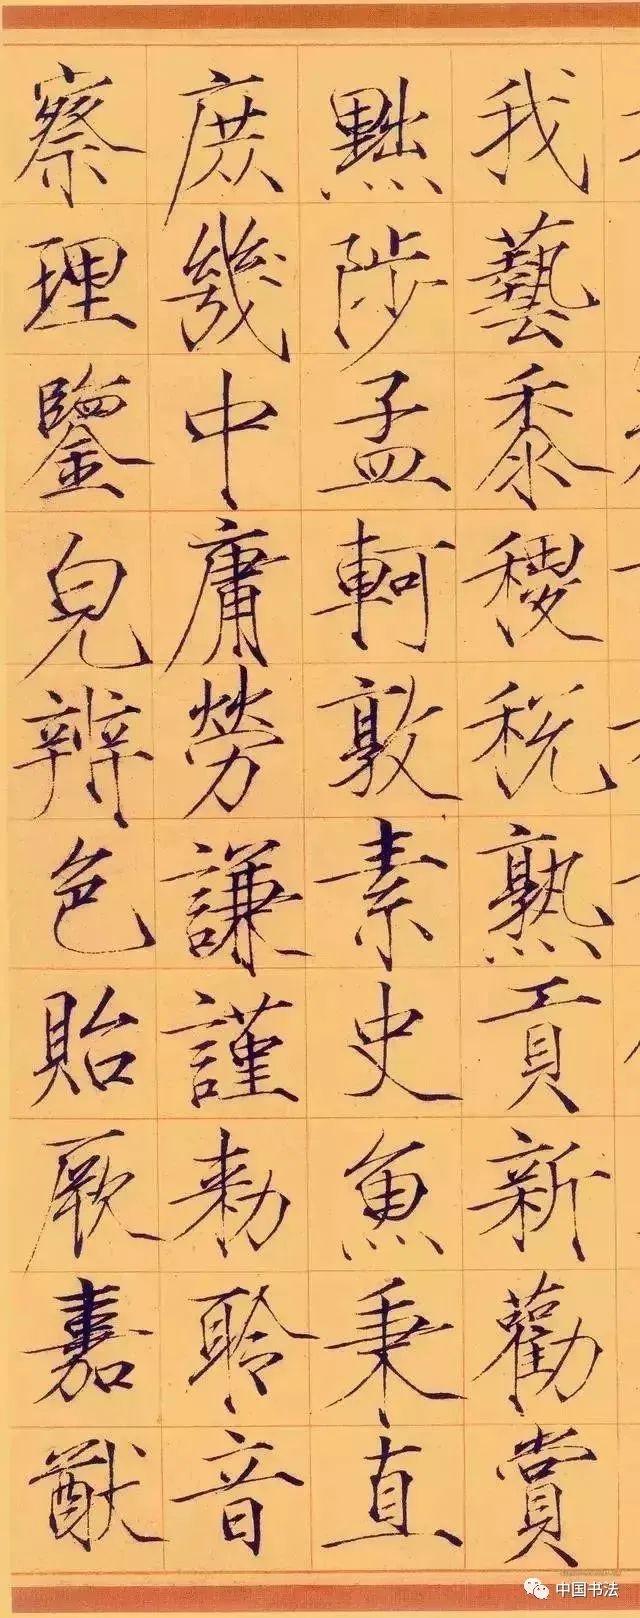 我藝黍稷稅熟貢新勸賞
黜陟孟軻敦素史魚秉直
庶幾中庸勞謙謹勅聆音
察理鑒皃辨色貽厥嘉猷
中国书法